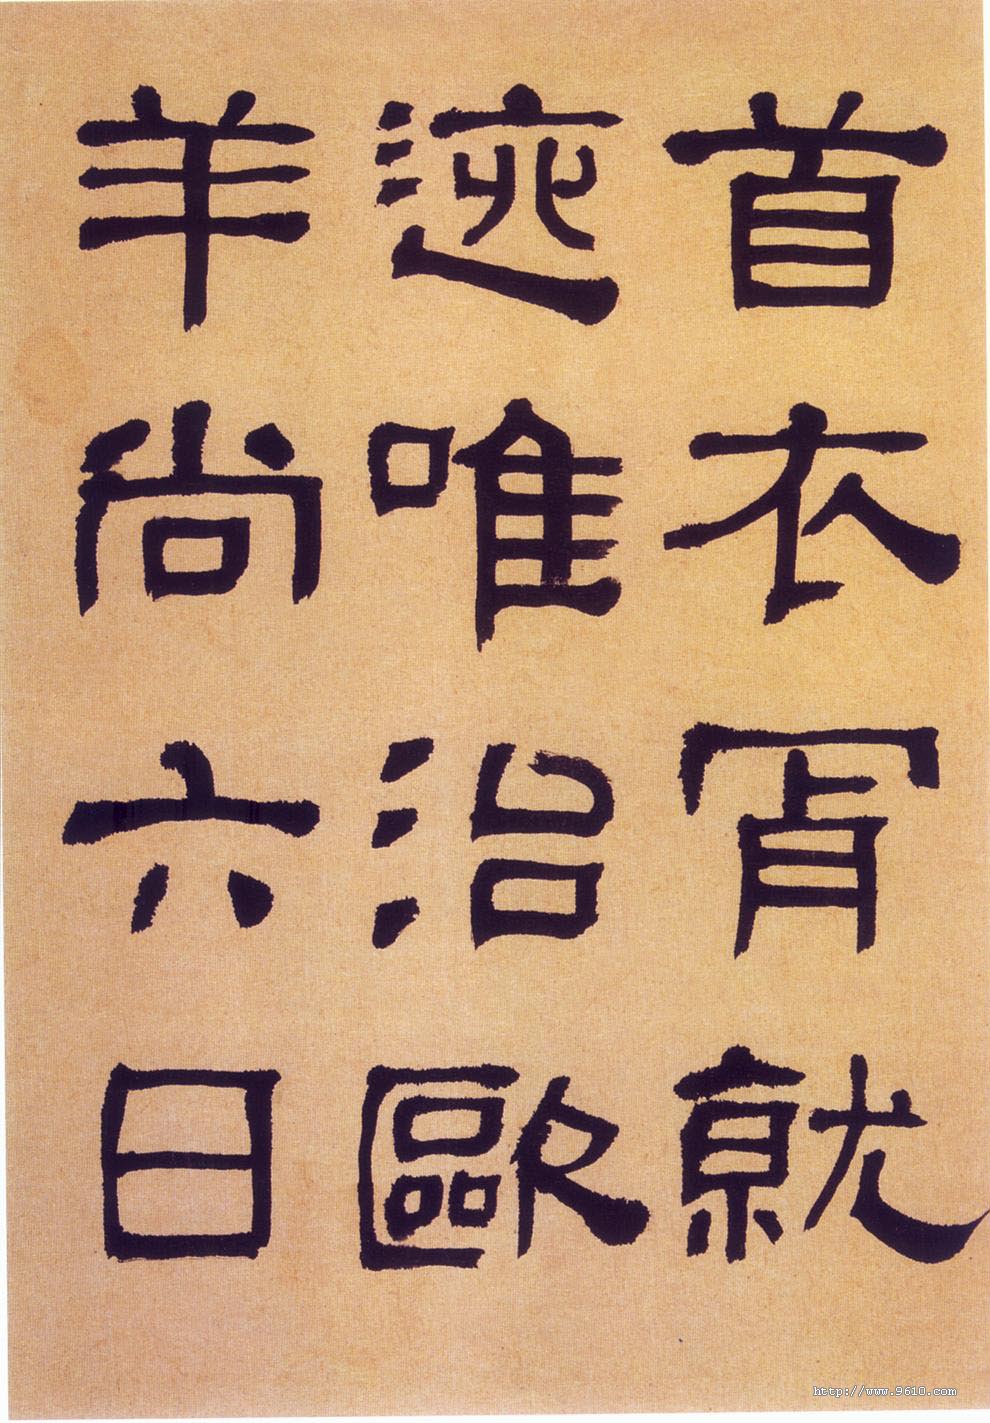 首衣肯就
迹唯治歐
羊尚六日
http://www.9610.com